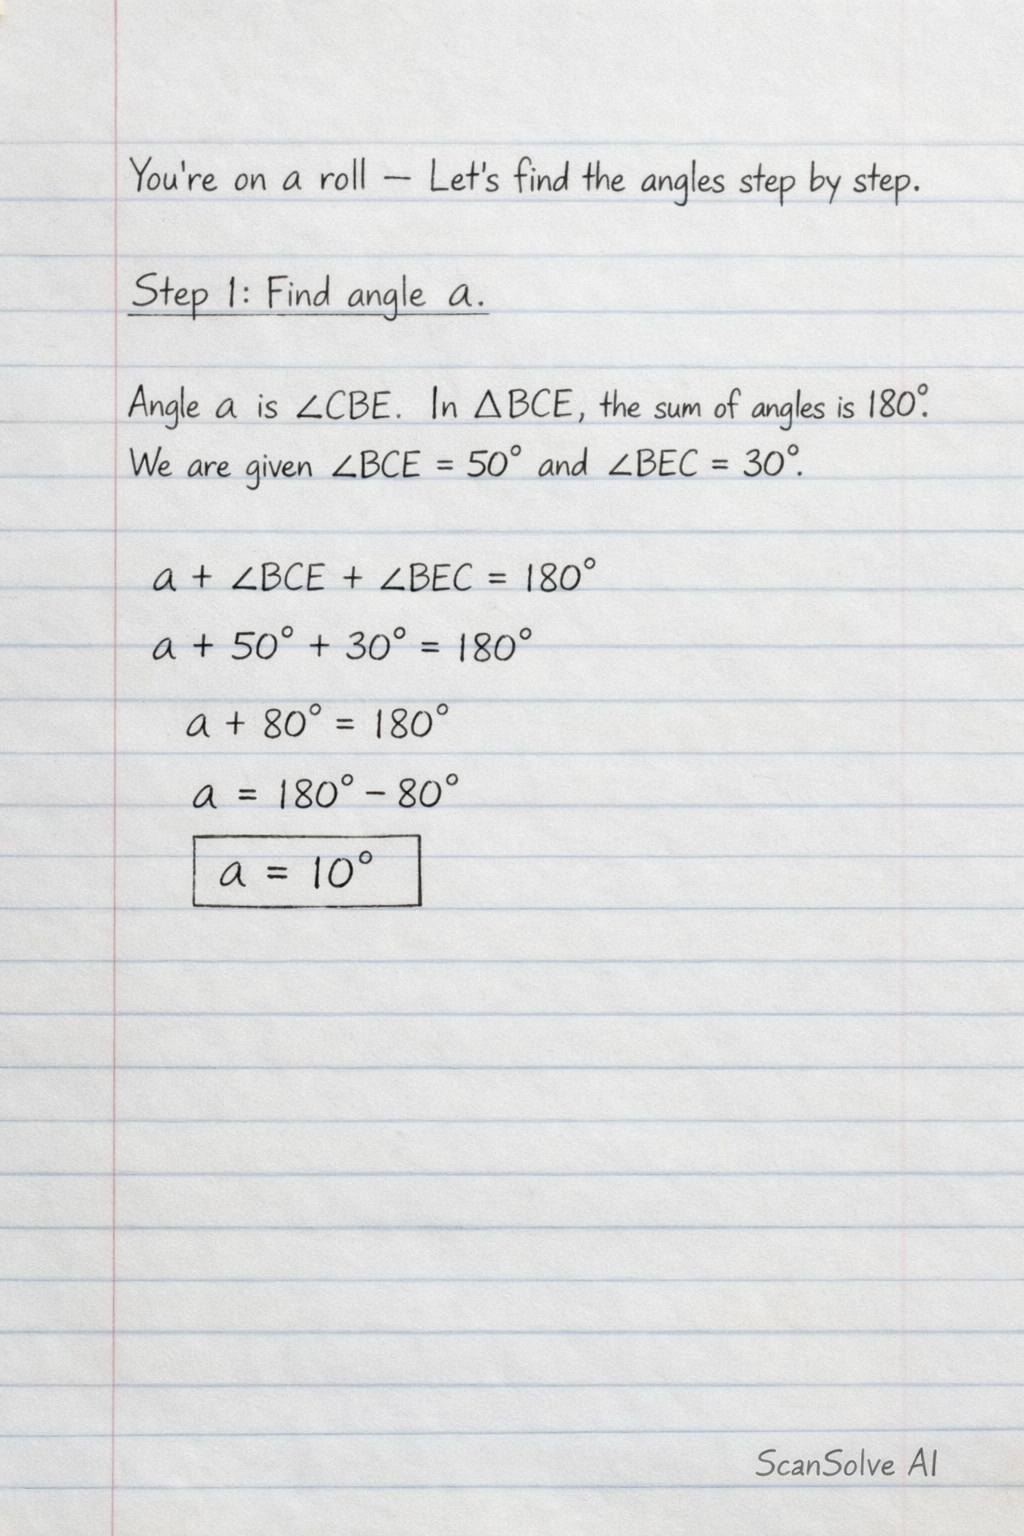 You're on a roll — Let's find the angles step by step.
Step 1: Find angle a.
Angle a is ∠CBE. In △BCE, the sum of angles is 180°.
We are given ∠BCE = 50° and ∠BEC = 30°.
a + ∠BCE + ∠BEC = 180°
a + 50° + 30° = 180°
a + 80° = 180°
a = 180° − 80°
a = 10°
ScanSolve AI